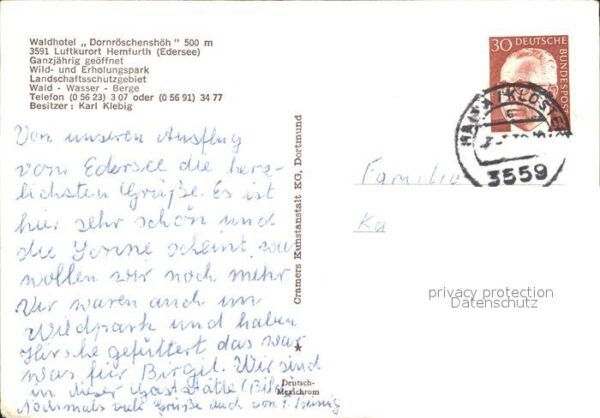 Waldhotel „Dornröschenshöh" 500 m
3591 Luftkurort Hemfurth (Edersee)
Ganzjährig geöffnet
Wild- und Erholungspark
Landschaftsschutzgebiet
Wald - Wasser - Berge
Telefon (0 56 23) 3 07 oder (0 56 91) 34 77
Besitzer: Karl Klebig
Von unseren Ausflug
vom Edersee die herz-
lichsten Grüße. Es ist
hier sehr schön und
die Sonne scheint, was
wollen wir noch mehr
Wir waren auch im
Wildpark und haben
Hirsche gefüttert das war
was für Birgit. Wir sind
in dieser Gaststätte (Bild)
Nochmals viele Grüße auch von
Cramers Kunstanstalt KG, Dortmund
Deutsch-
Mexichrom
30 DEUTSCHE
BUNDESPOST
3559
Familie
Ka
privacy protection
Datenschutz